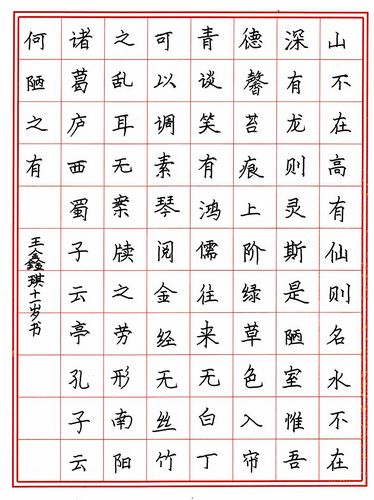 山不在高有仙则名水不在
深有龙则灵斯是陋室惟吾
德馨苔痕上阶绿草色入帘
青谈笑有鸿儒往来无白丁
可以调素琴阅金经无丝竹
之乱耳无案牍之劳形南阳
诸葛庐西蜀子云亭孔子云
何陋之有
王鑫琪十二岁书